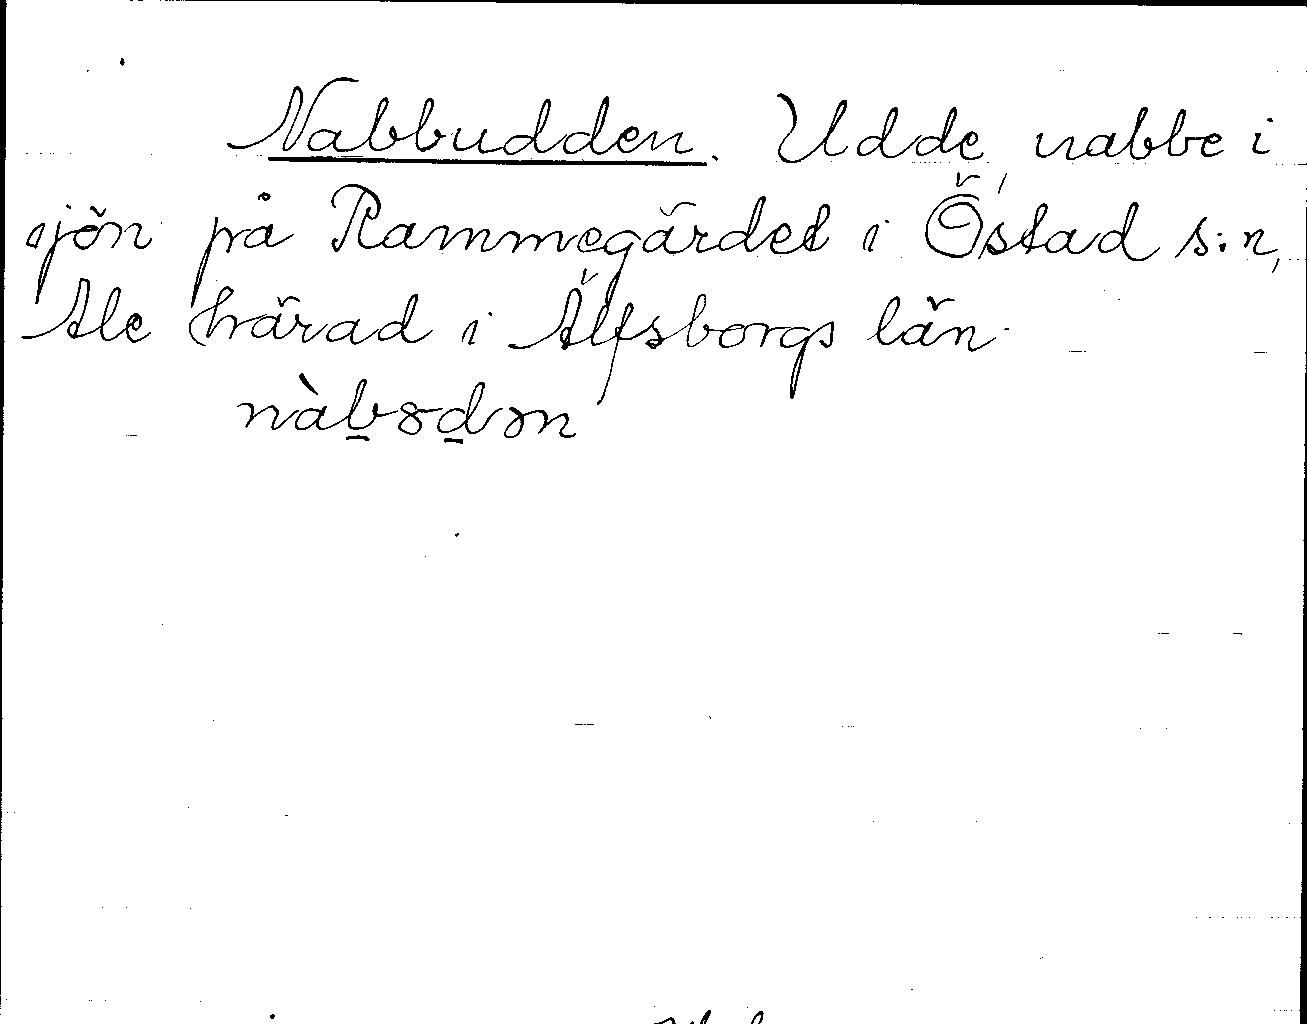 Nabbudden. Udde, nabbe i
sjön på Rammegärdet i Östad s:n,
Ale härad i Älfsborgs län.
nàb̲ȣd̲ən